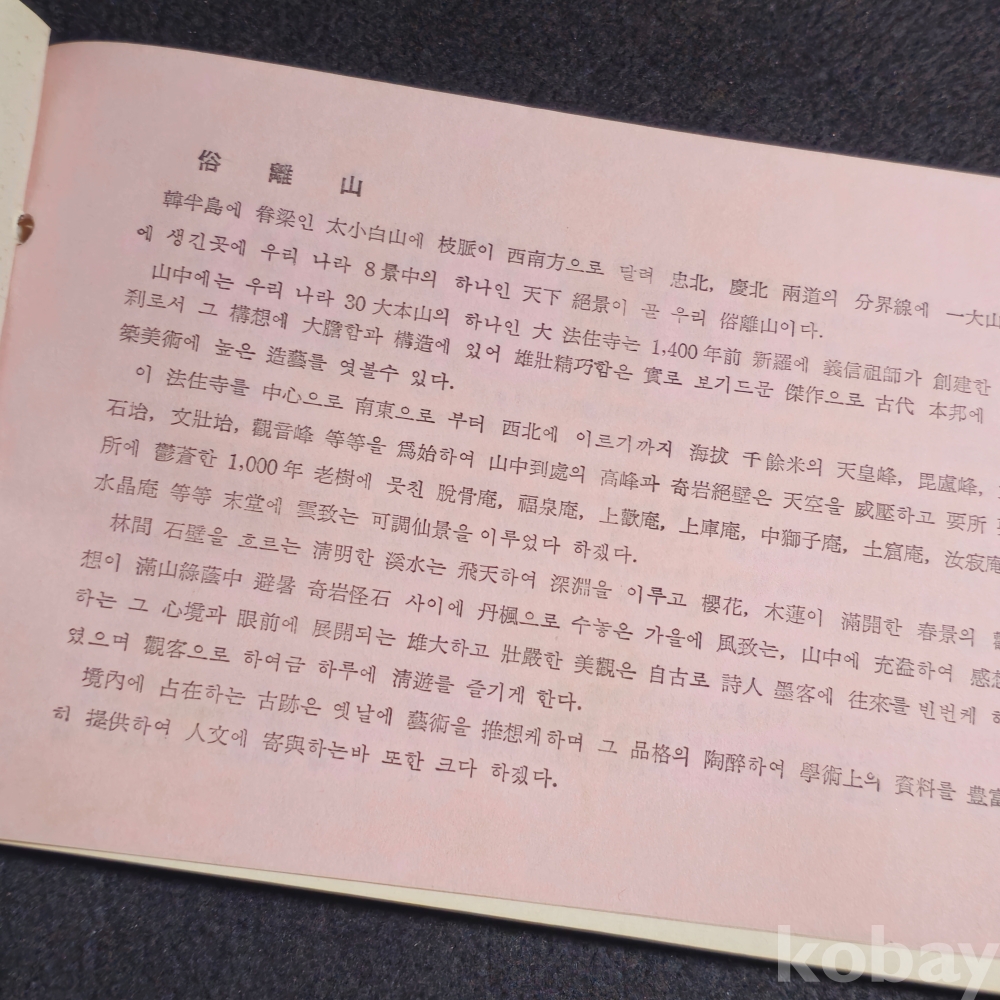 俗離山
韓半島에 脊梁인 太小白山에 枝脈이 西南方으로 달려 忠北, 慶北 兩道의 分界線에 一大山
에 생긴곳에 우리 나라 8景中의 하나인 天下 絕景이 곧 우리 俗離山이다.
山中에는 우리 나라 30大本山의 하나인 大 法住寺는 1,400年前 新羅에 義信祖師가 創建한
刹로서 그 構想에 大膽함과 構造에 있어 雄壯精巧함은 實로 보기드문 傑作으로 古代 本邦에
築美術에 높은 造藝를 엿볼수 있다.
이 法住寺를 中心으로 南東으로 부터 西北에 이르기까지 海拔 千餘米의 天皇峰, 毘盧峰,
石坮, 文壯坮, 觀音峰 等等을 爲始하여 山中到處의 高峰과 奇岩絕壁은 天空을 威壓하고 要所
所에 鬱蒼한 1,000年 老樹에 뭇친 脫骨庵, 福泉庵, 上歡庵, 上庫庵, 中獅子庵, 土窟庵, 汝寂庵
水晶庵 等等 末堂에 雲致는 可調仙景을 이루었다 하겠다.
林間 石壁을 흐르는 淸明한 溪水는 飛天하여 深淵을 이루고 櫻花, 木蓮이 滿開한 春景의
想이 滿山綠蔭中 避暑 奇岩怪石 사이에 丹楓으로 수놓은 가을에 風致는, 山中에 充溢하여 感想
하는 그 心境과 眼前에 展開되는 雄大하고 壯嚴한 美觀은 自古로 詩人 墨客에 往來를 빈번케 하
였으며 觀客으로 하여금 하루에 淸遊를 즐기게 한다.
境內에 占在하는 古跡은 옛날에 藝術을 推想케하며 그 品格의 陶醉하여 學術上의 資料를 豊富
히 提供하여 人文에 寄與하는바 또한 크다 하겠다.
kobay